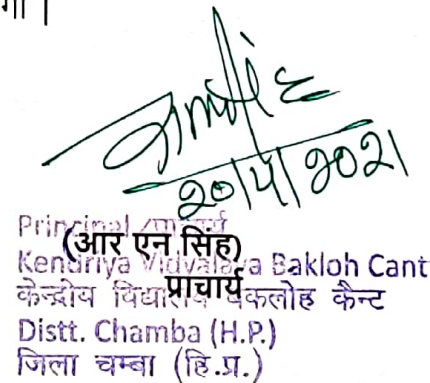 गा |
20/4/2021
Principal
(आर एन सिंह)
Kendriya Vidyalaya Bakloh Cant
प्राचार्य
केन्द्रीय विद्यालय बकलोह कैन्ट
Distt. Chamba (H.P.)
जिला चम्बा (हि.प्र.)